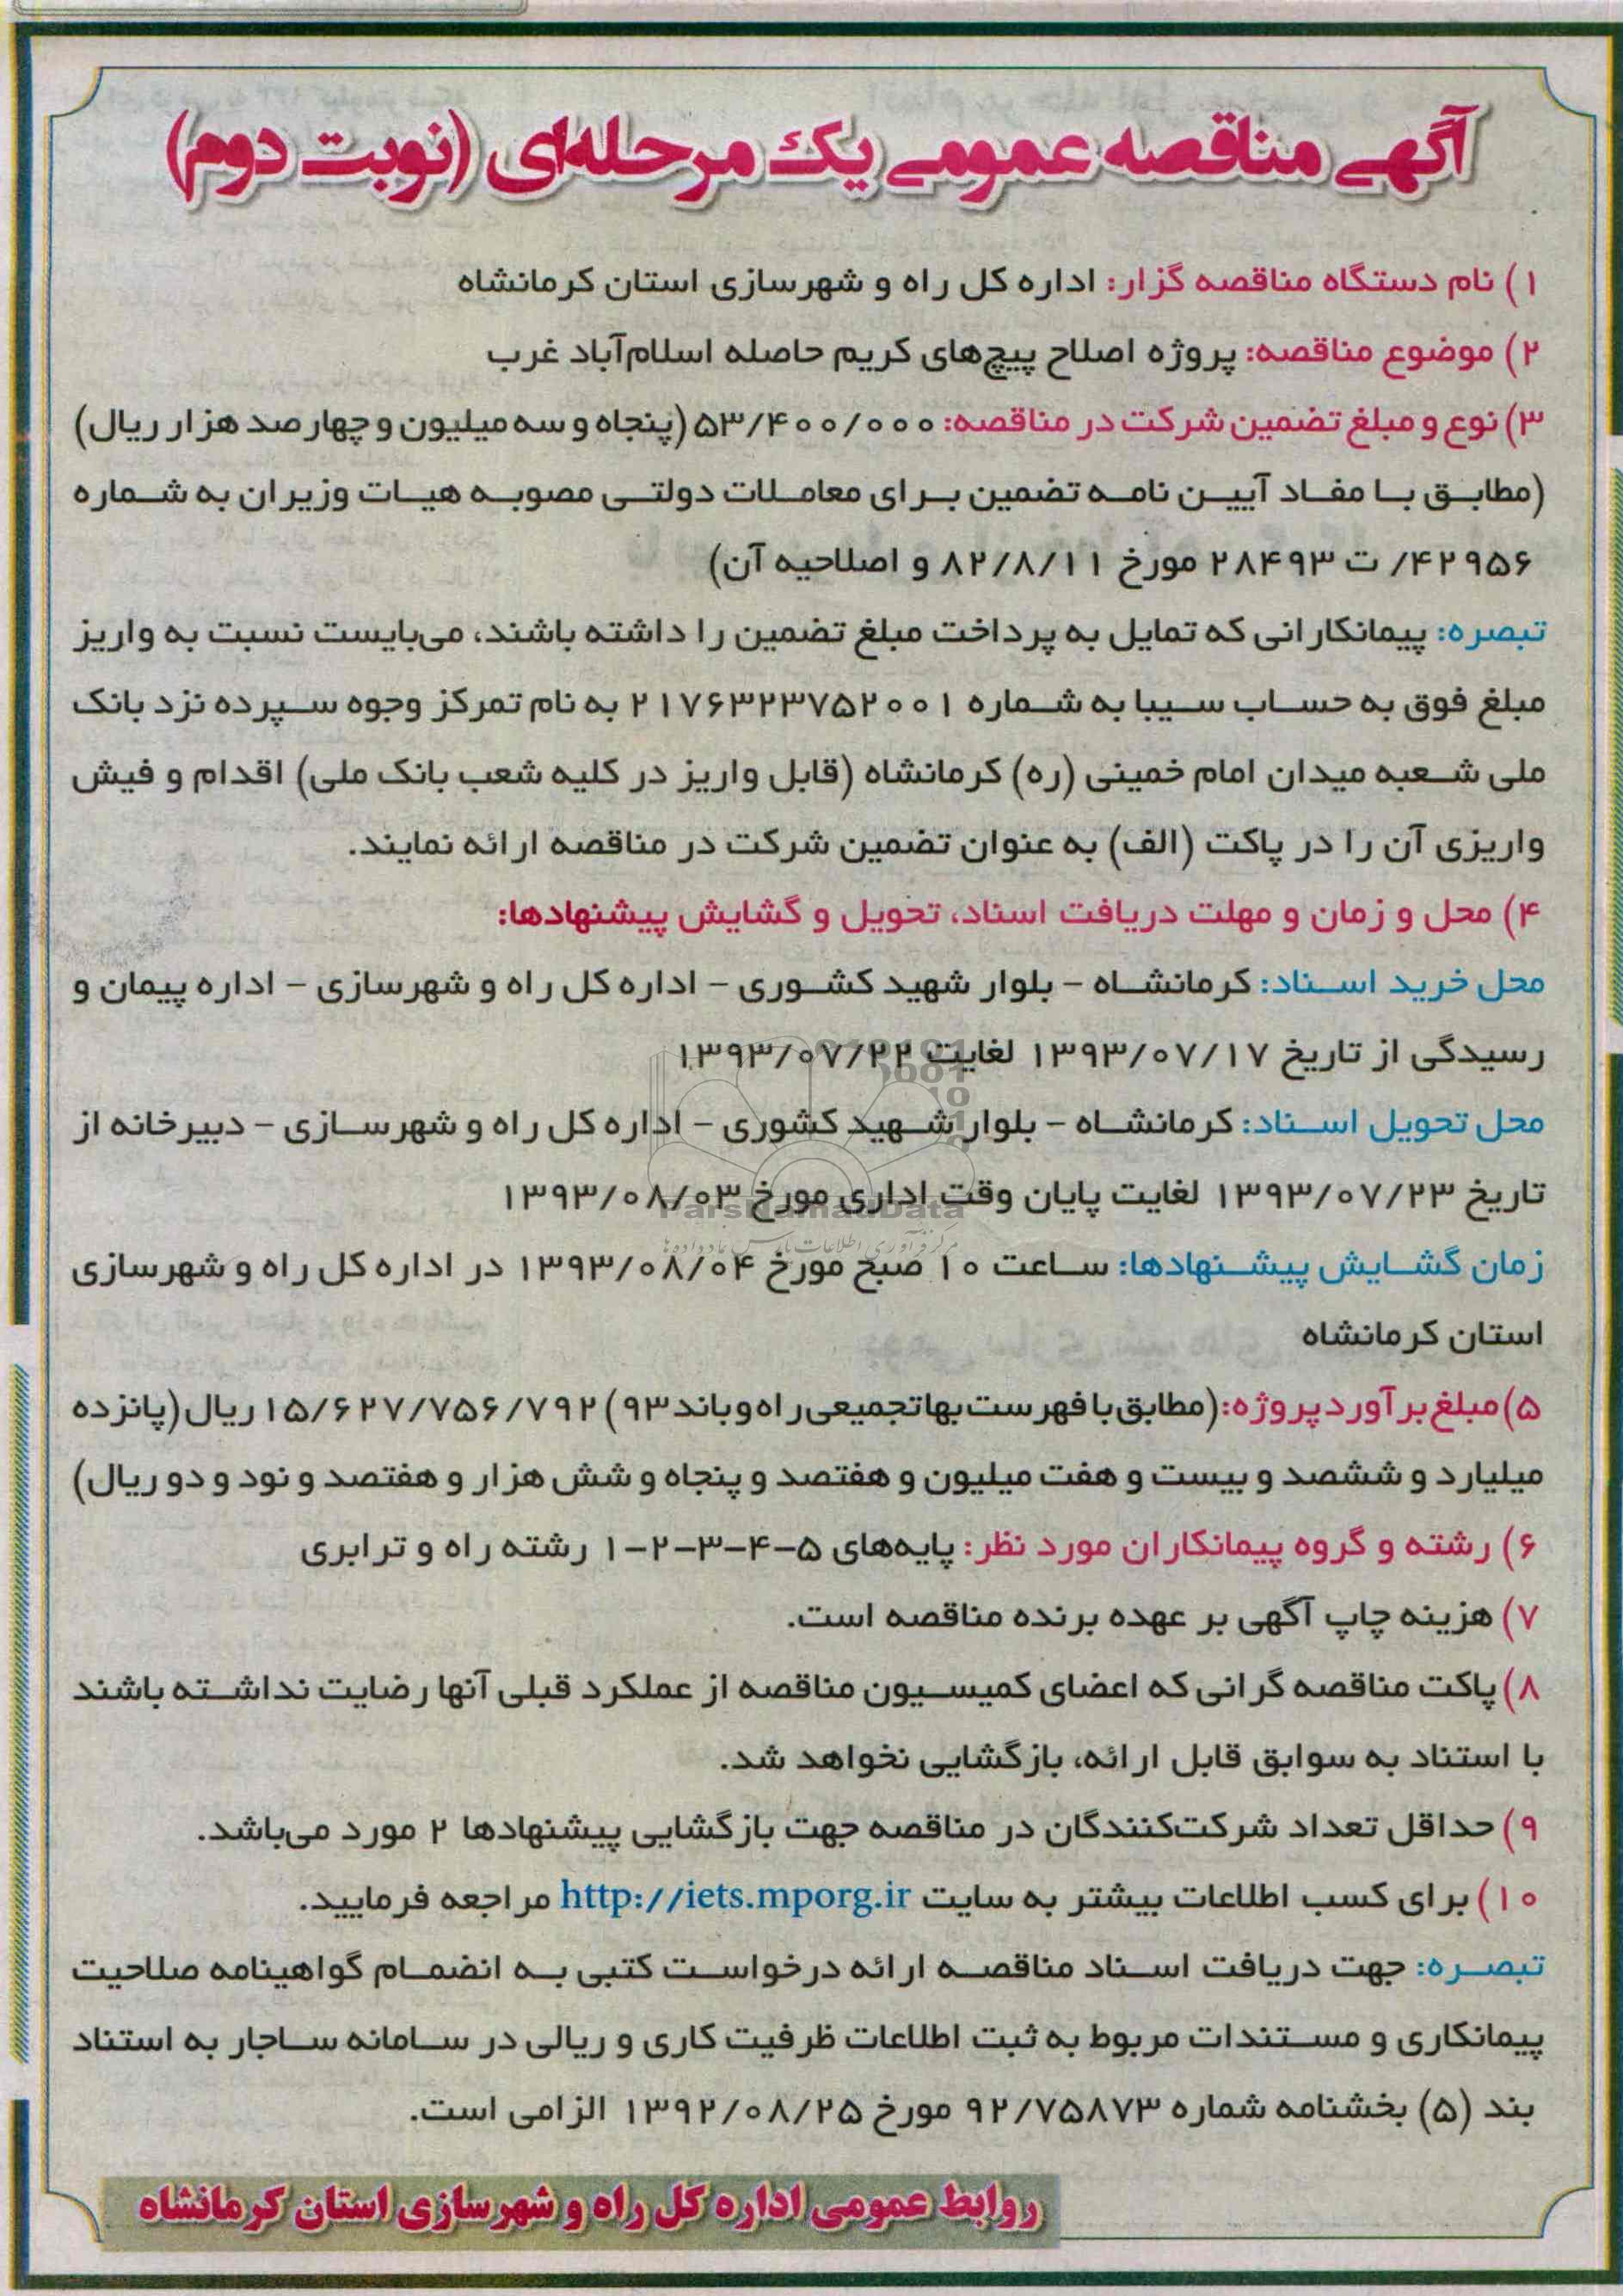 آگهی مناقصه عمومی یک مرحله‌ای (نوبت دوم)
۱) نام دستگاه مناقصه گزار: اداره کل راه و شهرسازی استان کرمانشاه
۲) موضوع مناقصه: پروژه اصلاح پیچ‌های کریم حاصله اسلام‌آباد غرب
۳) نوع و مبلغ تضمین شرکت در مناقصه: ۵۳/۴۰۰/۰۰۰ (پنجاه و سه میلیون و چهار صد هزار ریال)
(مطابق با مفاد آیین نامه تضمین برای معاملات دولتی مصوبه هیات وزیران به شماره
۴۲۹۵۶/ ت ۲۸۴۹۳ مورخ ۸۲/۸/۱۱ و اصلاحیه آن)
تبصره: پیمانکارانی که تمایل به پرداخت مبلغ تضمین را داشته باشند، می‌بایست نسبت به واریز
مبلغ فوق به حساب سیبا به شماره ۲۱۷۶۳۲۳۷۵۲۰۰۱ به نام تمرکز وجوه سپرده نزد بانک
ملی شعبه میدان امام خمینی (ره) کرمانشاه (قابل واریز در کلیه شعب بانک ملی) اقدام و فیش
واریزی آن را در پاکت (الف) به عنوان تضمین شرکت در مناقصه ارائه نمایند.
۴) محل و زمان و مهلت دریافت اسناد، تحویل و گشایش پیشنهادها:
محل خرید اسناد: کرمانشاه – بلوار شهید کشوری – اداره کل راه و شهرسازی – اداره پیمان و
رسیدگی از تاریخ ۱۳۹۳/۰۷/۱۷ لغایت ۱۳۹۳/۰۷/۲۲
محل تحویل اسناد: کرمانشاه – بلوار شهید کشوری – اداره کل راه و شهرسازی – دبیرخانه از
تاریخ ۱۳۹۳/۰۷/۲۳ لغایت پایان وقت اداری مورخ ۱۳۹۳/۰۸/۰۳
ParsNamadData
زمان گشایش پیشنهادها: ساعت ۱۰ صبح مورخ ۱۳۹۳/۰۸/۰۴ در اداره کل راه و شهرسازی
استان کرمانشاه
۵) مبلغ برآورد پروژه: (مطابق با فهرست بها تجمیعی راه و باند ۹۳) ۱۵/۶۲۷/۷۵۶/۷۹۲ ریال (پانزده
میلیارد و ششصد و بیست و هفت میلیون و هفتصد و پنجاه و شش هزار و هفتصد و نود و دو ریال)
۶) رشته و گروه پیمانکاران مورد نظر: پایه‌های ۵-۴-۳-۲-۱ رشته راه و ترابری
۷) هزینه چاپ آگهی بر عهده برنده مناقصه است.
۸) پاکت مناقصه گرانی که اعضای کمیسیون مناقصه از عملکرد قبلی آنها رضایت نداشته باشند
با استناد به سوابق قابل ارائه، بازگشایی نخواهد شد.
۹) حداقل تعداد شرکت‌کنندگان در مناقصه جهت بازگشایی پیشنهادها ۲ مورد می‌باشد.
۱۰) برای کسب اطلاعات بیشتر به سایت http://iets.mporg.ir مراجعه فرمایید.
تبصره: جهت دریافت اسناد مناقصه ارائه درخواست کتبی به انضمام گواهینامه صلاحیت
پیمانکاری و مستندات مربوط به ثبت اطلاعات ظرفیت کاری و ریالی در سامانه ساجار به استناد
بند (۵) بخشنامه شماره ۹۲/۷۵۸۷۳ مورخ ۱۳۹۲/۰۸/۲۵ الزامی است.
روابط عمومی اداره کل راه و شهرسازی استان کرمانشاه